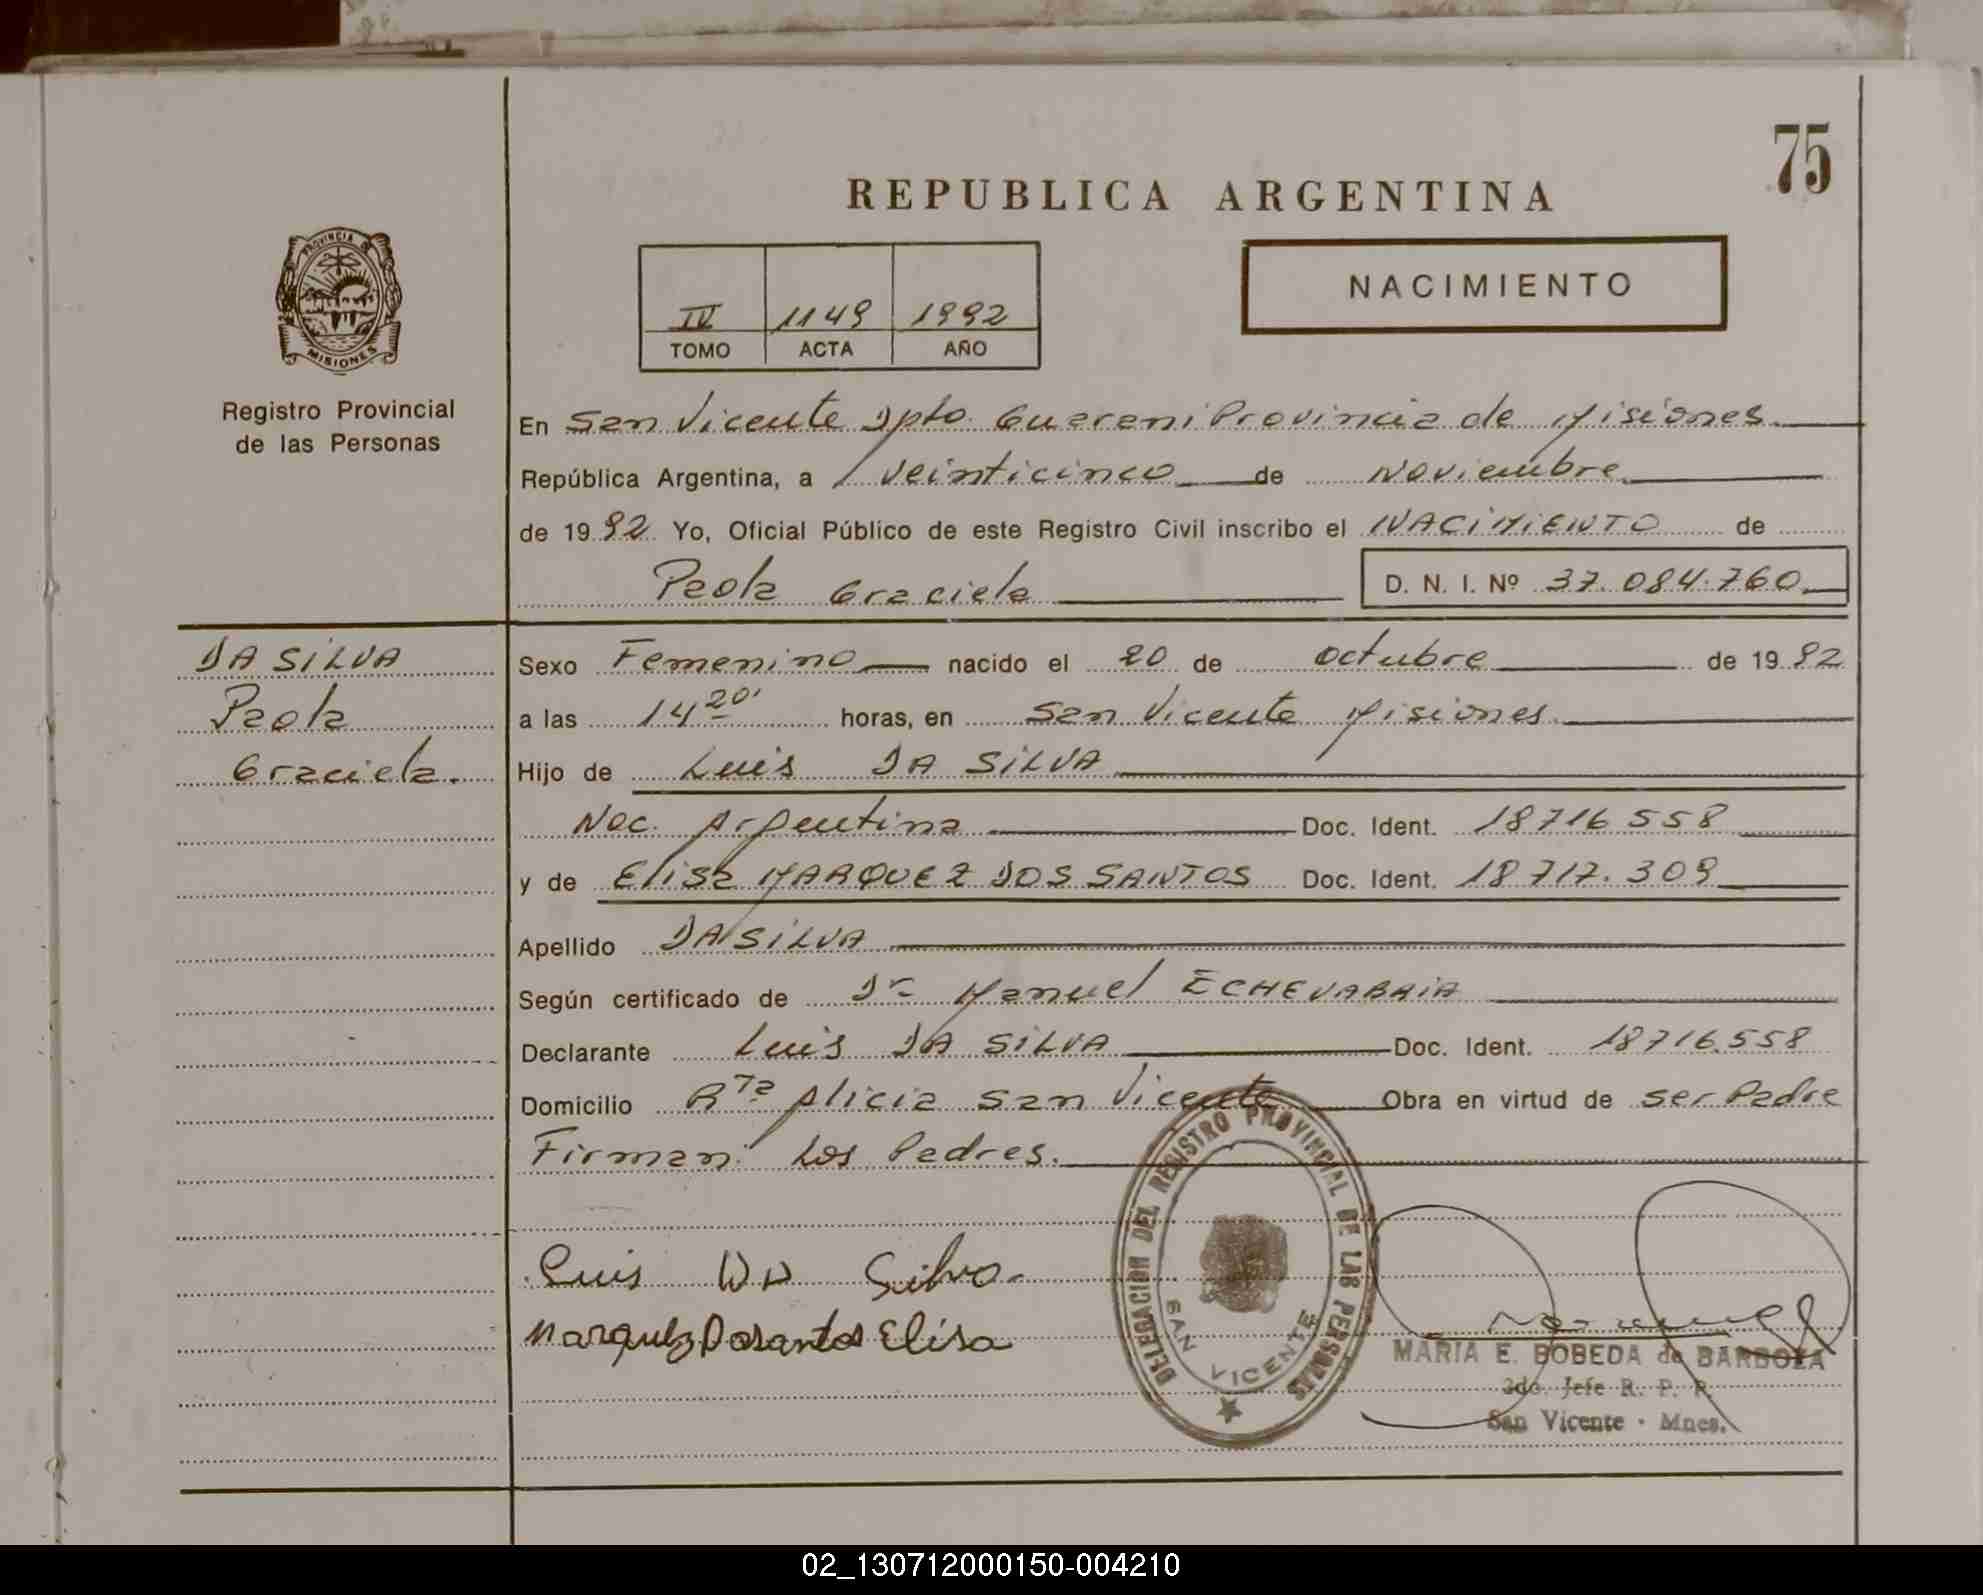 75
REPUBLICA ARGENTINA
PROVINCIA DE
MISIONES
Registro Provincial
de las Personas
IV 1149 1992
TOMO ACTA AÑO
NACIMIENTO
En San Vicente Dpto. Guarani Provincia de Misiones
República Argentina, a veinticinco de Noviembre
de 1992 Yo, Oficial Público de este Registro Civil inscribo el NACIMIENTO de
Paola Graciela D. N. I. Nº 37.084.760
DA SILVA
Paola
Graciela.
Sexo Femenino nacido el 20 de octubre de 1992
a las 14 20' horas, en San Vicente Misiones
Hijo de Luis DA SILVA
Nac. Argentina Doc. Ident. 18716558
y de Elisa MARQUEZ DOS SANTOS Doc. Ident. 18717.309
Apellido DA SILVA
Según certificado de Dr Manuel ECHEVARRIA
Declarante Luis DA SILVA Doc. Ident. 18716.558
Domicilio Rta Alicia San Vicente Obra en virtud de ser Padre
Firman Los Padres.
Luis Da Silva
Marquez Dosantos Elisa
DELEGACION DEL REGISTRO PROVINCIAL DE LAS PERSONAS
SAN VICENTE
MARIA E. BOBEDA de BARBOZA
2do. Jefe R. P. P.
San Vicente - Mnes.
02_130712000150-004210